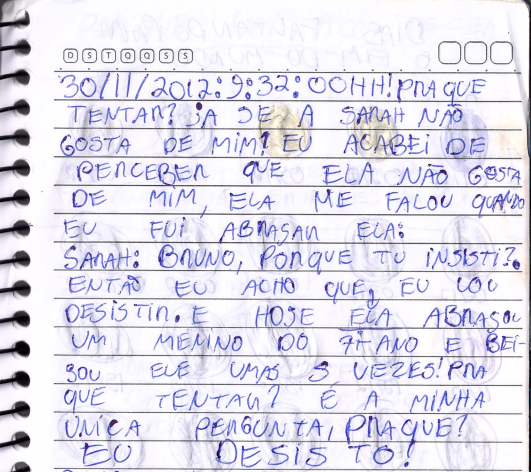 D S T Q Q S S
30/11/2012:9:32:00HH! PRA QUE
TENTAR? JA SE A SARAH NÃO
GOSTA DE MIM? EU ACABEI DE
PERCEBER QUE ELA NÃO GOSTA
DE MIM, ELA ME FALOU QUANDO
EU FUI ABRASAR ELA:
SARAH: BRUNO, PORQUE TU INSISTI?.
ENTÃO EU ACHO QUE, EU VOU
DESISTIR. E HOSE ELA ABRASOU
UM MENINO DO 7º ANO E BEI-
SOU ELE UMAS 5 VEZES! PRA
QUE TENTAR? É A MINHA
UNICA PERGUNTA, PRAQUE?
EU DESISTO!